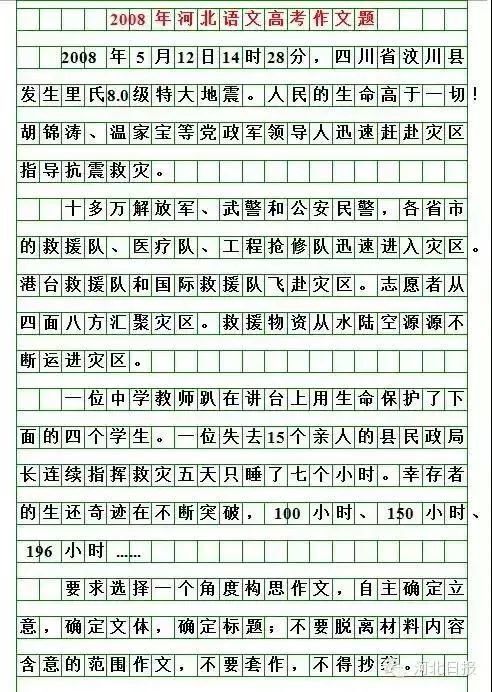 2008年河北语文高考作文题
2008 年5月12日14时28分，四川省汶川县
发生里氏8.0级特大地震。人民的生命高于一切！
胡锦涛、温家宝等党政军领导人迅速赶赴灾区
指导抗震救灾。
十多万解放军、武警和公安民警，各省市
的救援队、医疗队、工程抢修队迅速进入灾区。
港台救援队和国际救援队飞赴灾区。志愿者从
四面八方汇聚灾区。救援物资从水陆空源源不
断运进灾区。
一位中学教师趴在讲台上用生命保护了下
面的四个学生。一位失去15个亲人的县民政局
长连续指挥救灾五天只睡了七个小时。幸存者
的生还奇迹在不断突破，100小时、150小时、
196小时……
要求选择一个角度构思作文，自主确定立
意，确定文体，确定标题；不要脱离材料内容
含意的范围作文，不要套作，不得抄袭。
河北日报